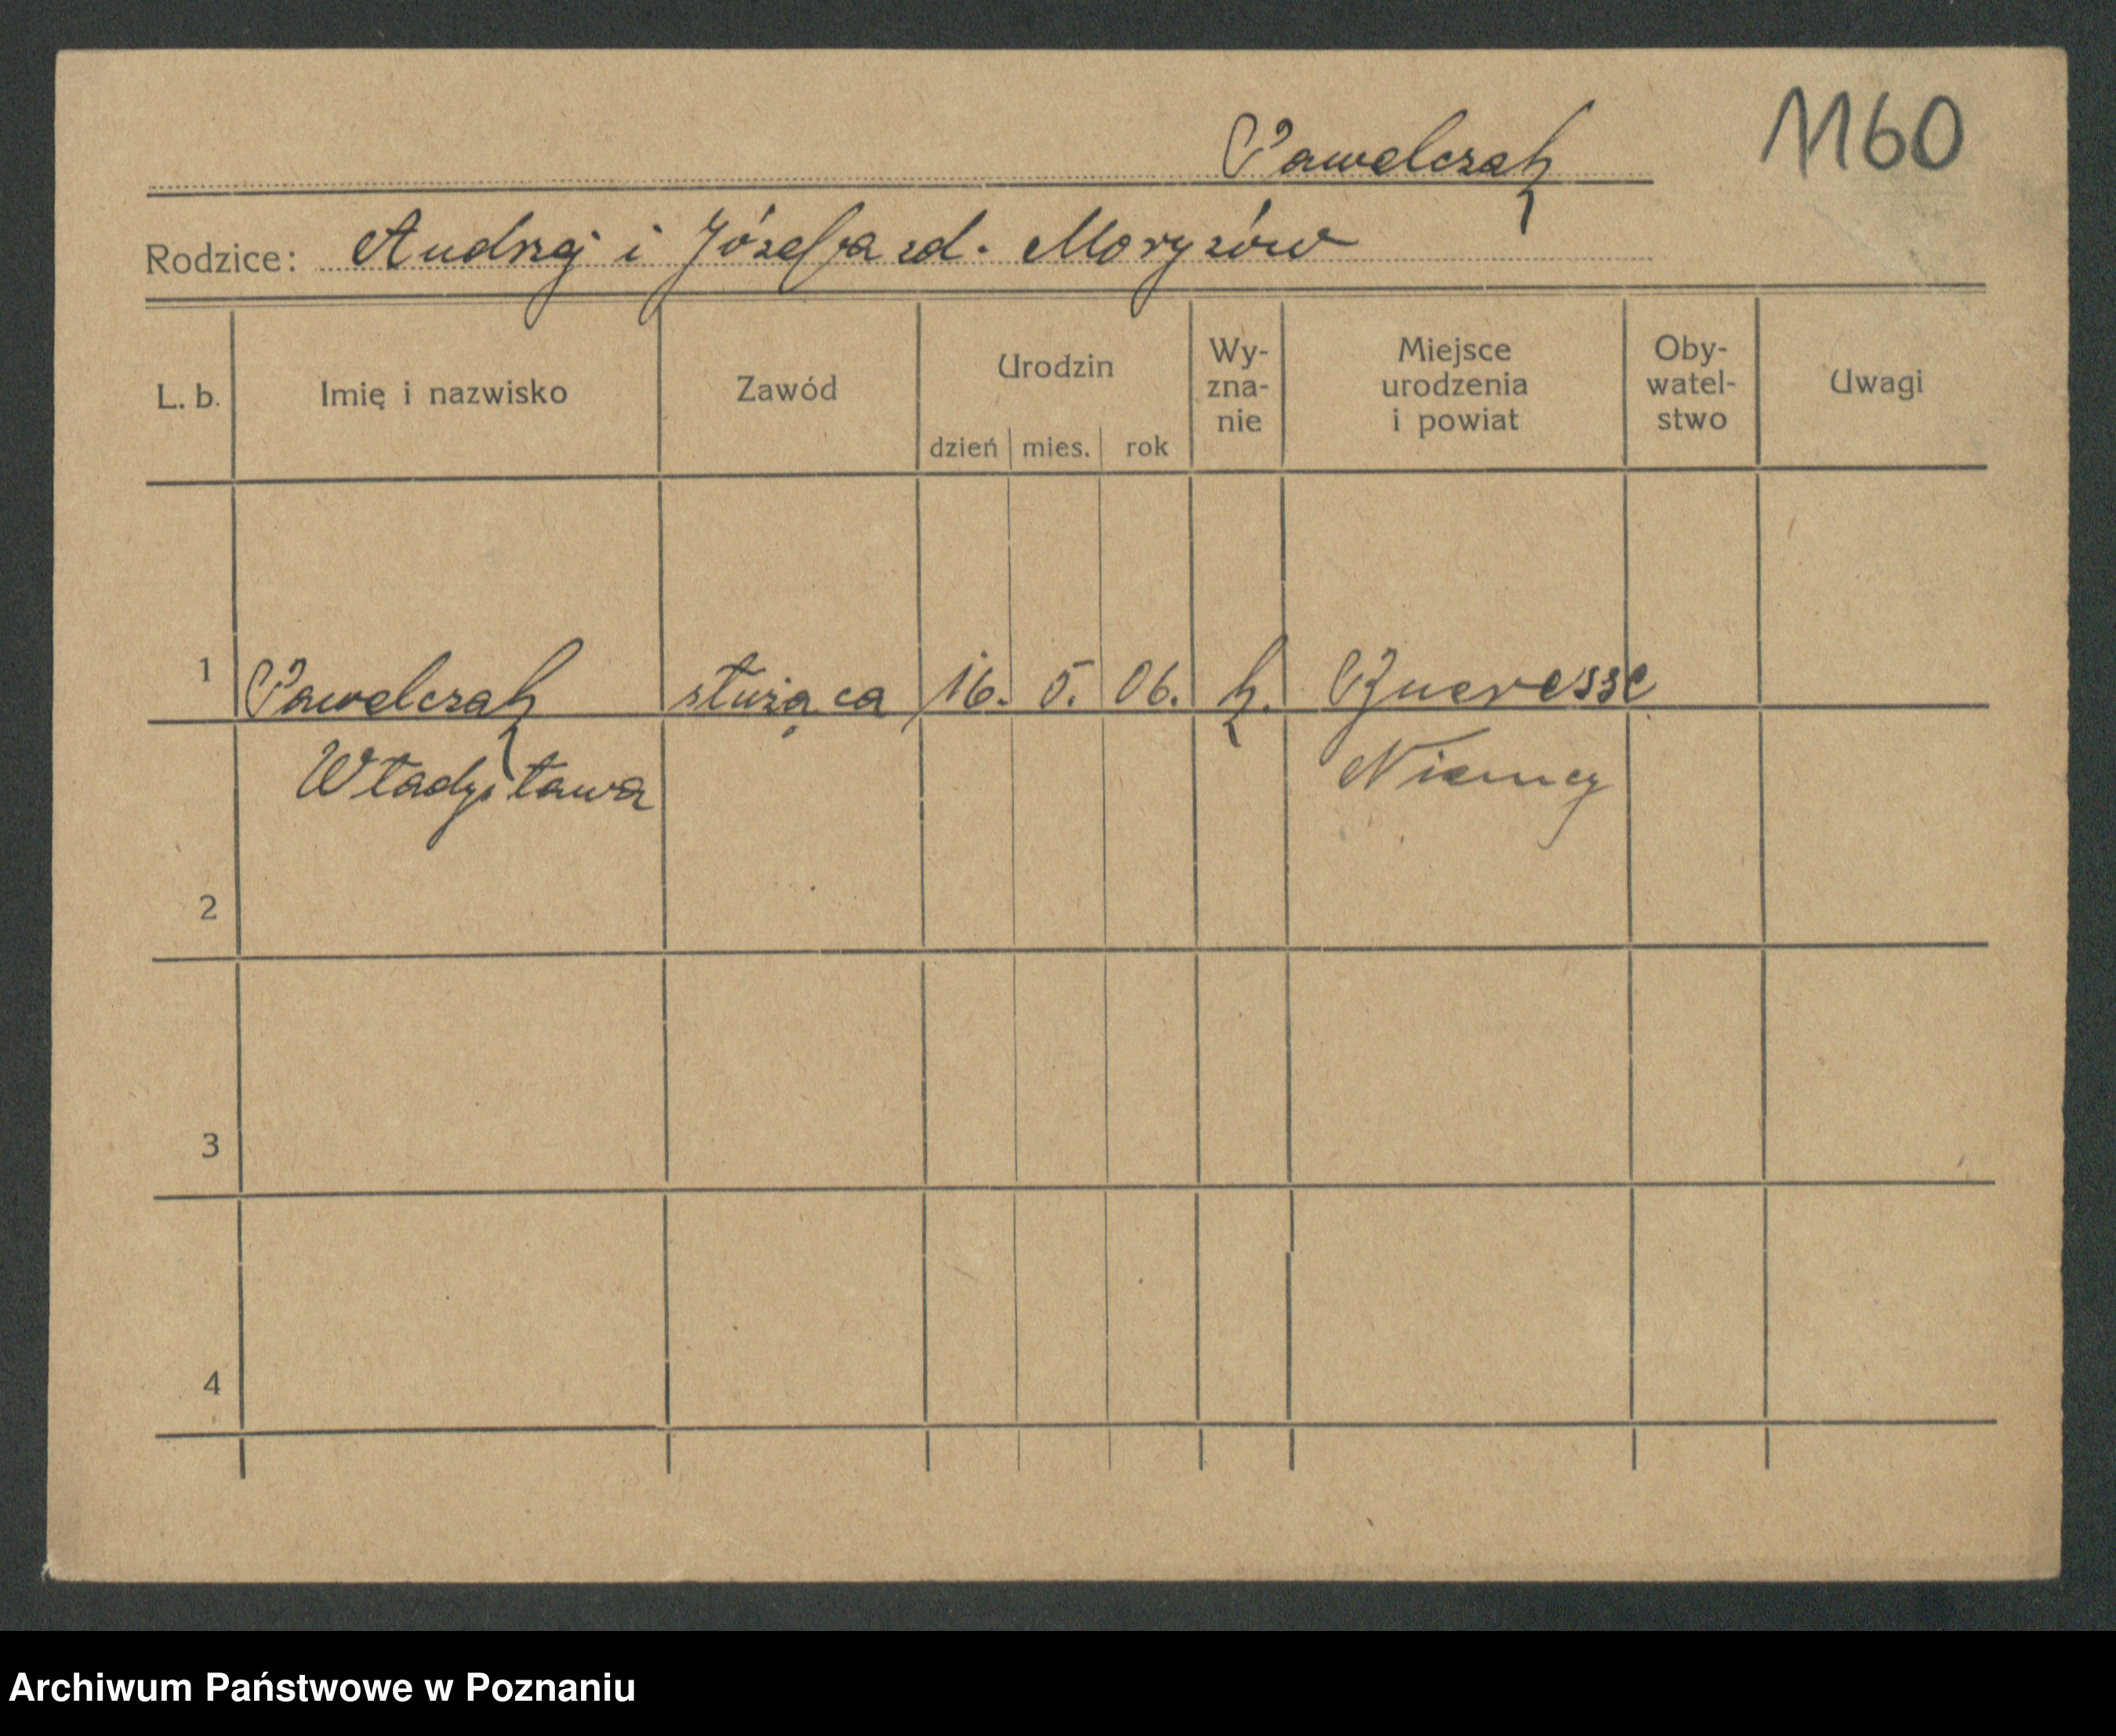 1160
Pawelczak
Rodzice: Andrzej i Józefa zd. Moryzów
L. b. Imię i nazwisko Zawód Urodzin dzień mies. rok Wy- zna- nie Miejsce urodzenia i powiat Oby- watel- stwo Uwagi
1 Pawelczak służąca 16. 5. 06. k.
Władysława Niemcy
2
3
4
Archiwum Państwowe w Poznaniu